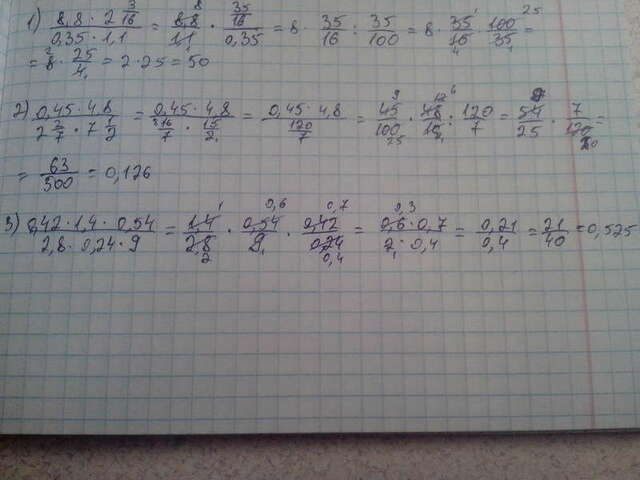 1) (8,8 · 2 3/16)/(0,35 · 1,1) = (8,8)/(1,1) · (35/16)/(0,35) = 8 · 35/16 : 35/100 = 8 · 35/16 · 100/35 =
= 8 · 25/4 = 2 · 25 = 50
2) (0,45 · 4,8)/(2 2/7 · 7 1/2) = (0,45 · 4,8)/(16/7 · 15/2) = (0,45 · 4,8)/(120/7) = 45/100 · 48/10 : 120/7 = 54/25 · 7/120 =
= 63/500 = 0,126
3) (0,42 · 1,4 · 0,54)/(2,8 · 0,24 · 9) = 1,4/2,8 · 0,54/9 · 0,42/0,24 = (0,6 · 0,7)/(2 · 0,4) = 0,21/0,4 = 21/40 = 0,525